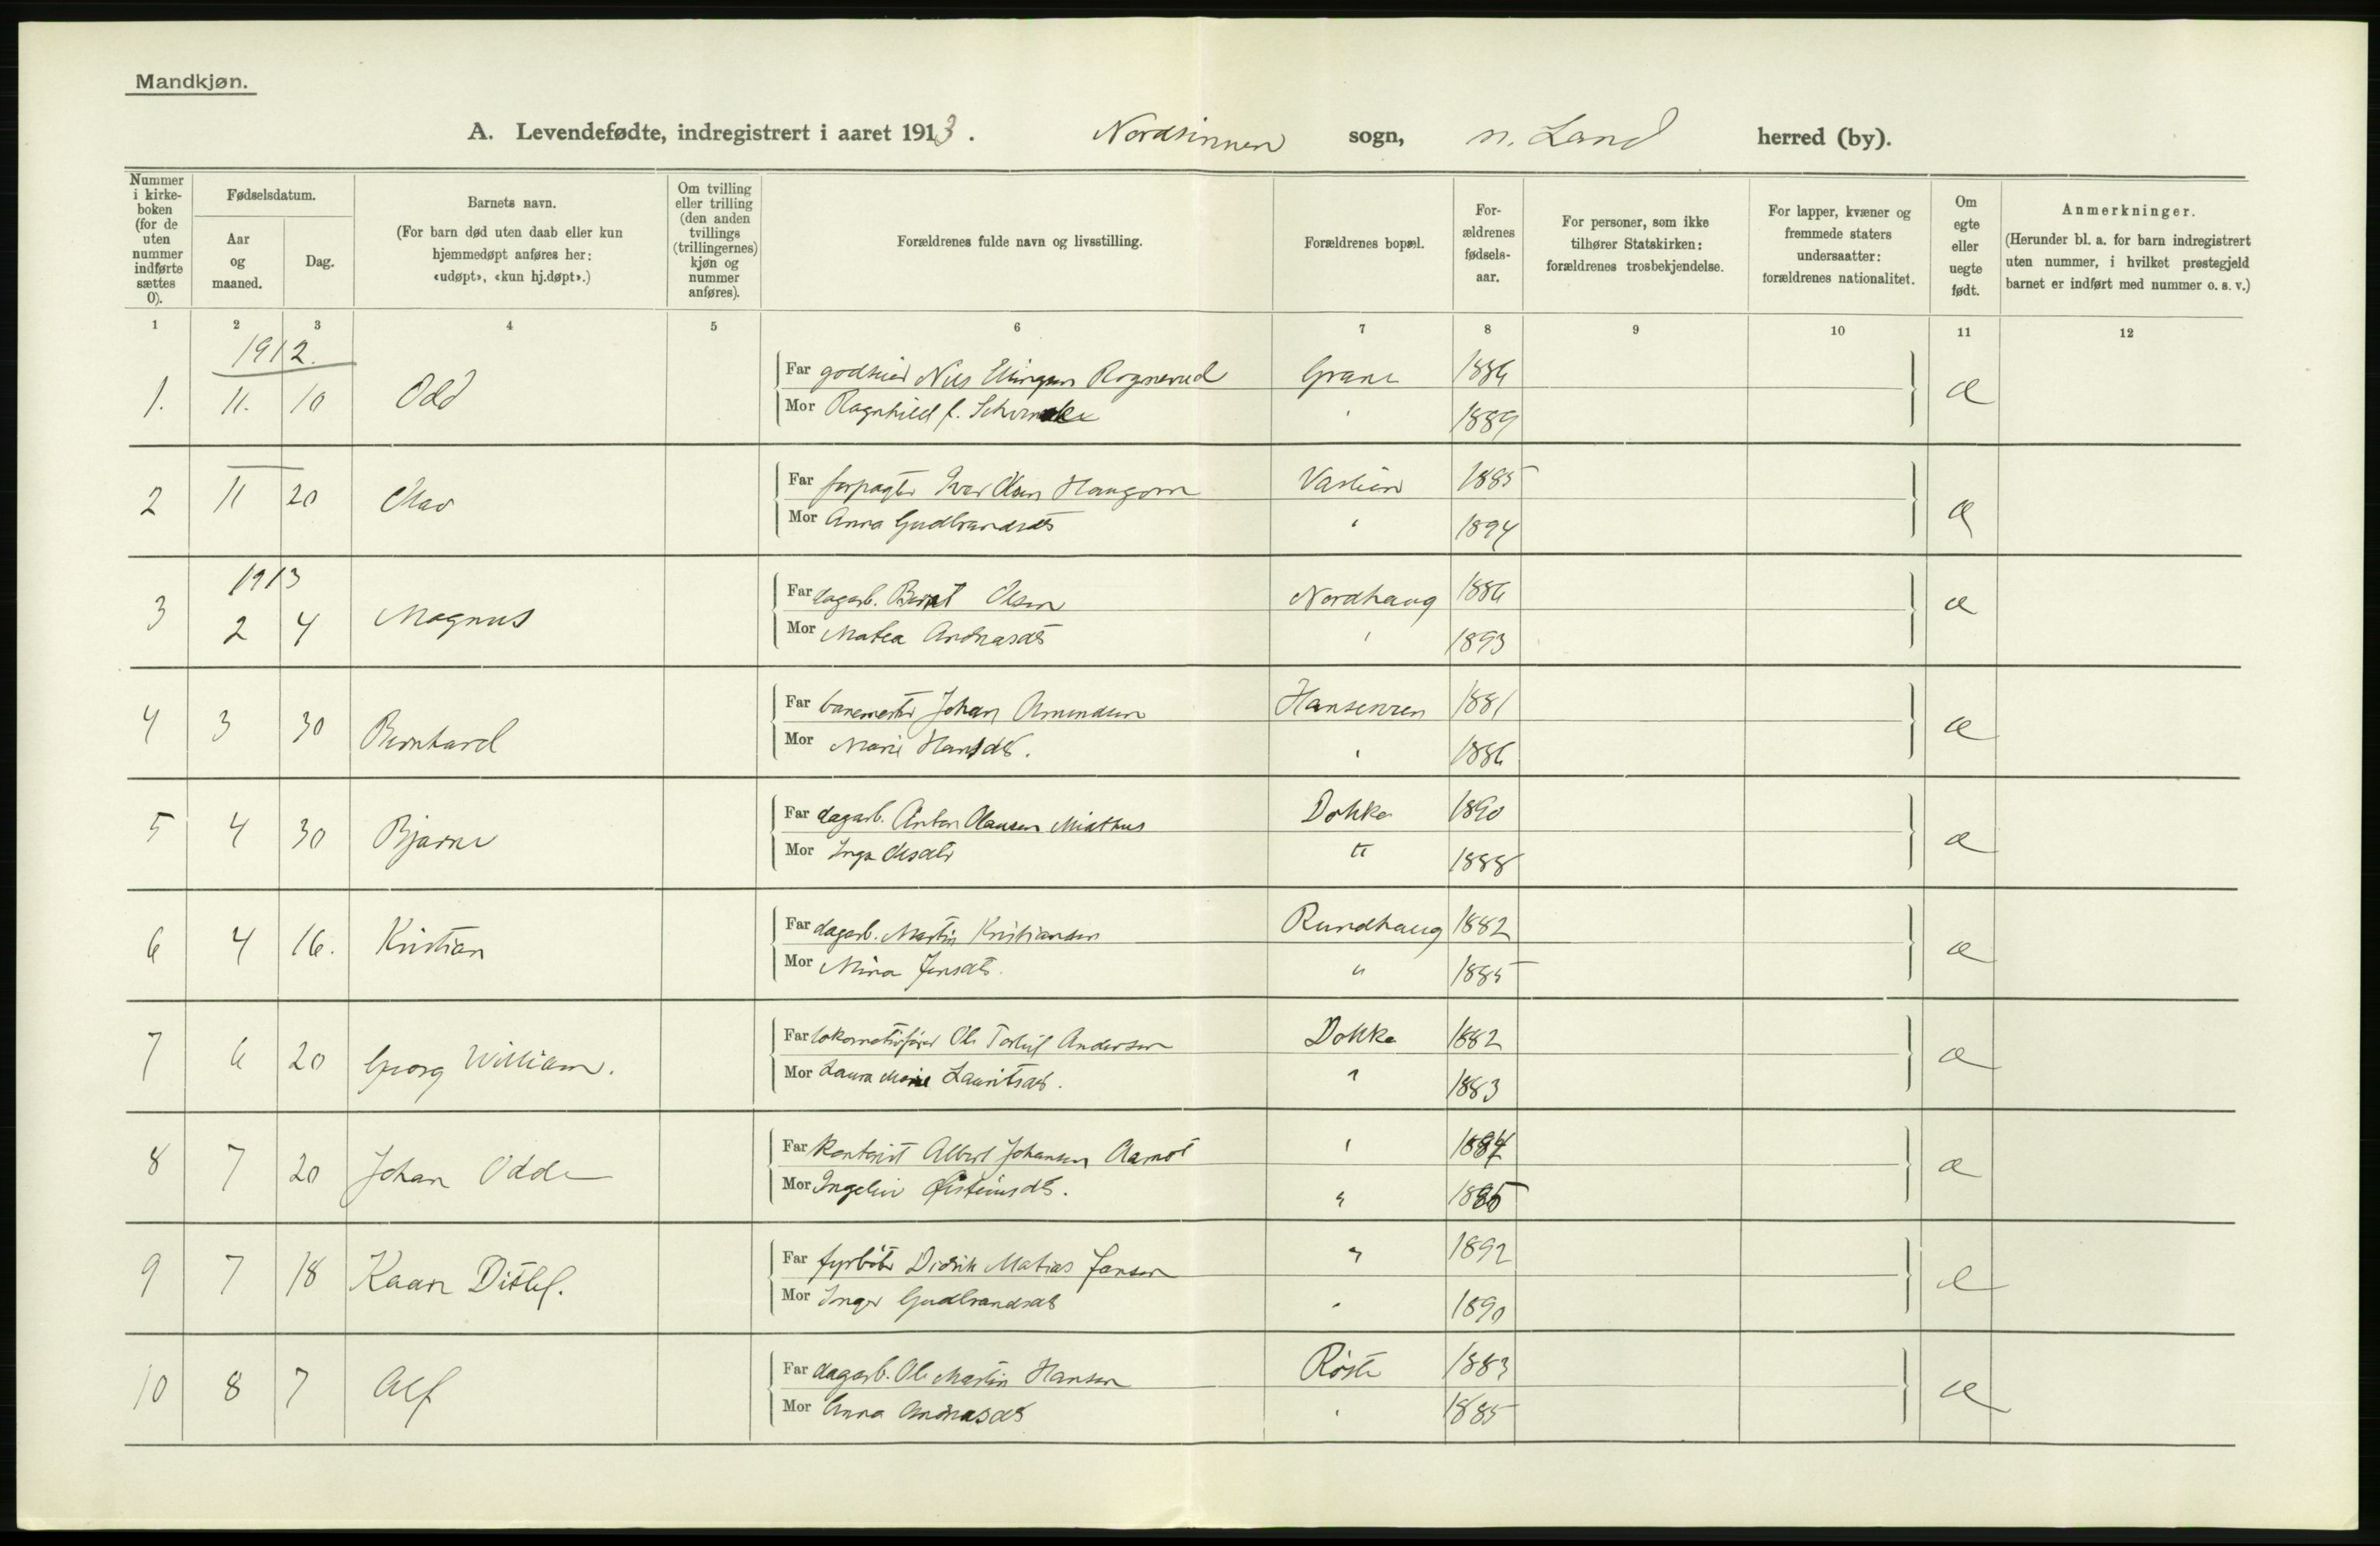 Mandkjøn.
A. Levendefødte, indregistrert i aaret 1913. Nordsinnen sogn, n. Land herred (by).
Nummer i kirke-boken (for de uten nummer indførte sættes 0).
Fødselsdatum.
Aar og maaned.
Dag.
Barnets navn.
(For barn død uten daab eller kun hjemmedøpt anføres her: «udøpt», «kun hj.døpt».)
Om tvilling eller trilling (den anden tvillings (trillingernes) kjøn og nummer anføres).
Forældrenes fulde navn og livsstilling.
Forældrenes bopæl.
For-ældrenes fødsels-aar.
For personer, som ikke tilhører Statskirken: forældrenes trosbekjendelse.
For lapper, kvæner og fremmede staters undersaatter: forældrenes nationalitet.
Om egte eller uegte født.
Anmerkninger.
(Herunder bl. a. for barn indregistrert uten nummer, i hvilket prestegjeld barnet er indført med nummer o. s. v.)
1 2 3 4 5 6 7 8 9 10 11 12
1912.
1. 11. 10 Odd
Far godseier Nils Rognerud Grane 1886
Mor Ragnhild f. " 1889
æ
2 11 20 Olav
Far forpagter Iver Olsen Haugom 1885
Mor Anna Gudbrandsdt " 1894
æ
1913
3 2 4 Magnus
Far dagarb. Bernt Olsen Nordhaug 1886
Mor Matea Andreasdt " 1893
æ
4 3 30 Bernhard
Far banemester Johan Amundsen Hansenren 1881
Mor Marie Hansdt. " 1886
æ
5 4 30 Bjarne
Far dagarb. Anton Olausen Dokka 1890
Mor Inga Olsdtr " 1888
æ
6 4 16. Kristian
Far dagarb. Martin Kristiansen Rundhaug 1882
Mor Mina Jensdt. " 1885
æ
7 6 20 Georg William.
Far lokomotivfører Ole Torleif Andersen Dokka 1882
Mor Laura Marie Lauritsdt. " 1883
æ
8 7 20 Johan Odde
Far kontorist Albert Johansen Aamot " 1884
Mor Ingeleiv Øisteinsdt. " 1885
æ
9 7 18 Kaare Ditlef.
Far fyrbøter Didrik Matias Jensen " 1892
Mor Inger Gudbrandsdt " 1890
æ
10 8 7 Alf
Far dagarb. Ole Martin Hansen Røste 1883
Mor Anna Andreasdt " 1885
æ